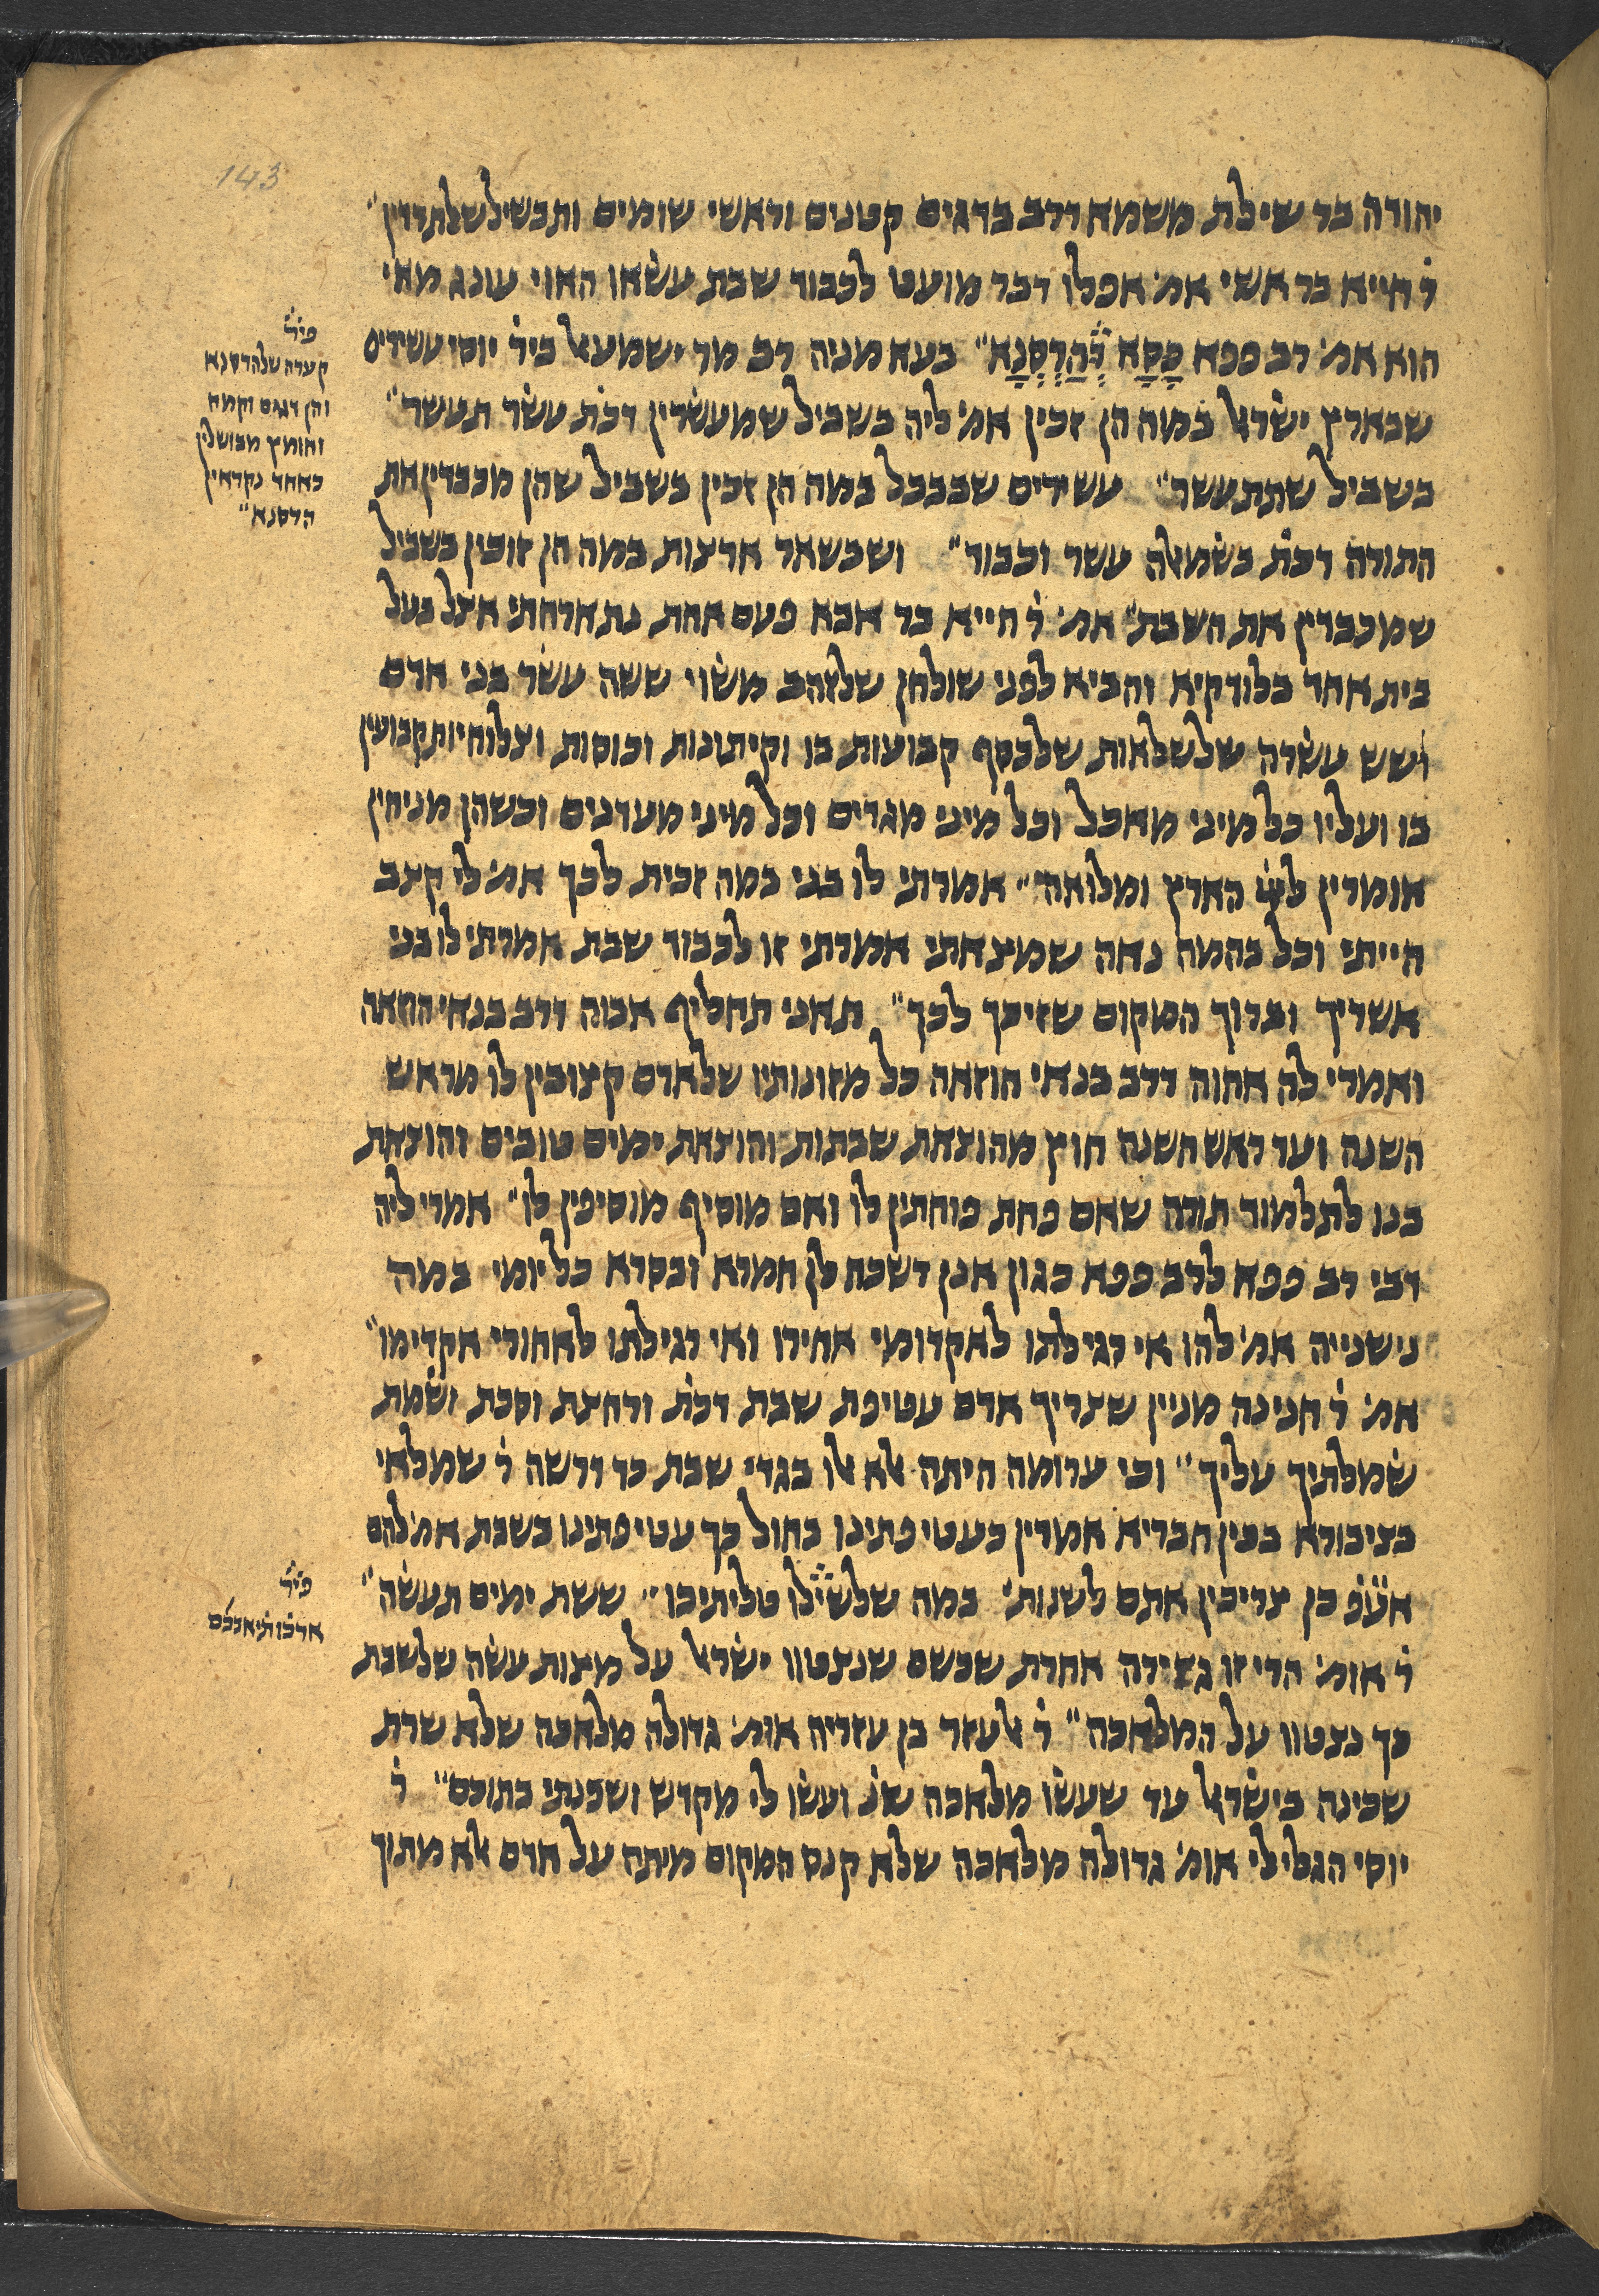 143
יהודה בר שילת משמא דרב בדגים קטנים וראשי שומים ותבשיל שלתרדין״
ר׳ חייא בר אשי אמ׳ אפלו דבר מועט לכבוד שבת עשאו האוי עונג מאי
הוא אמ׳ רב פפא כָּסָא דְהַרְסְנָא״ בעא מניה רב מר ישמעאל ביר׳ יוסי עשירים
שבארץ ישראל במה הן זכין אמ׳ ליה בשביל שמעשרין דכת׳ עשר תעשר״
בשביל שתתעשר״ עשירים שבבבל במה הן זכין בשביל שהן מכבדין את
התורה דכת׳ בשמאלה עשר וכבוד״ ושבשאר ארצות במה הן זוכין בשביל
שמכבדין את השבת״ אמ׳ ר׳ חייא בר אבא פעם אחת נתארחתי אצל בעל
בית אחד בלודקיא והביא לפני שולחן שלזהב משוי ששה עשר בני אדם
ושש עשרה שלשלאות שלכסף קבועות בו וקיתונות וכוסות וצלוחיות קבועין
בו ועליו כל מיני מאכל וכל מיני מגדים וכל מיני מעדנים וכשהן מניחין
אומרין ליי׳ הארץ ומלואה״ אמרתי לו בני במה זכית לכך אמ׳ לי קצב
הייתי וכל בהמה נאה שמצאתי אמרתי זו לכבוד שבת אמרתי לו בני
אשריך וברוך המקום שזיכך לכך״ תאני תחליף אבוה דרב בנאי חוזאה
ואמרי לה אחוה דרב בנאי חוזאה כל מזונותיו שלאדם קצובין לו מראש
השנה ועד ראש השנה חוץ מהוצאת שבתות והוצאת ימים טובים והוצאת
בנו לתלמוד תורה שאם פחת פוחתין לו ואם מוסיף מוסיפין לו״ אמרי ליה
דבי רב פפא לרב פפא כגון אנן דשכח לן חמרא ובסרא כל יומי במה
נישנייה אמ׳ להו אי רגילתו לאקדומי אחירו ואי רגילתו לאחורי אקדימו״
אמ׳ ר׳ חנינה מניין שצריך אדם עטיפת שבת דכת׳ ורחצת וסכת ושמת
שמלתיך עליך״ וכי ערומה היתה אלא אלו בגדי שבת כד דרשה ר׳ שמלאי
בציבורא בכין חבריא אמרין כעטיפתינו בחול כך עטיפתינו בשבת אמ׳ להם
אעפ׳ כן צריכין אתם לשנות׳ במה שלשילו טליתיכו״ ששת ימים תעשה״
ר׳ אומ׳ הרי זו גזירה אחרת שכשם שנצטוו ישראל על מצות עשה שלשבת
כך נצטוו על המלאכה״ ר׳ אלעזר בן עזריה אומ׳ גדולה מלאכה שלא שרת
שכינה בישראל עד שעשו מלאכה שנ׳ ועשו לי מקדש ושכנתי בתוכם״ ר׳
יוסי הגלילי אומ׳ גדולה מלאכה שלא קנס המקום מיתה על אדם אלא מתוך
פיר׳
קערה שלהרסנא
והן דגים וקמח
וחומץ מבושלין
כאחד נקראין
הרסנא״
פיר׳